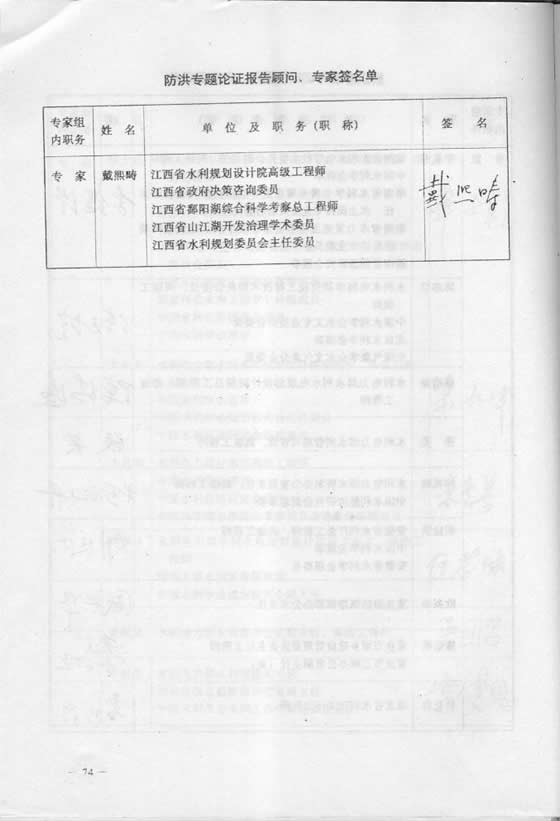 防洪专题论证报告顾问、专家签名单
专家组
内职务
姓 名
单 位 及 职 务（职 称）
签 名
专 家
戴熙畴
江西省水利规划设计院高级工程师
江西省政府决策咨询委员
江西省鄱阳湖综合科学考察总工程师
江西省山江湖开发治理学术委员
江西省水利规划委员会主任委员
戴熙畴
— 74 —